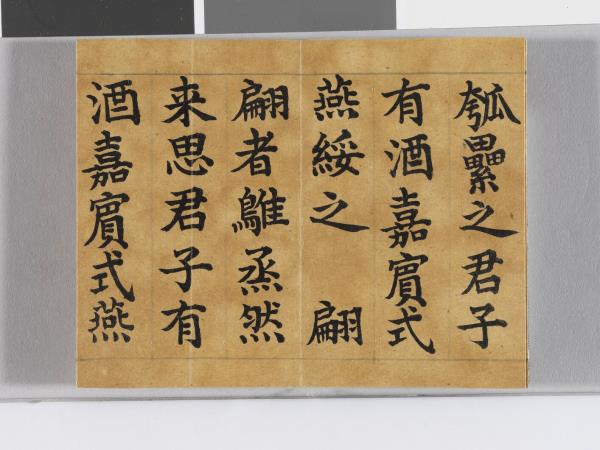 瓠纍之君子
有酒嘉賔式
燕綏之　翩
翩者鵻烝然
来思君子有
酒嘉賔式燕